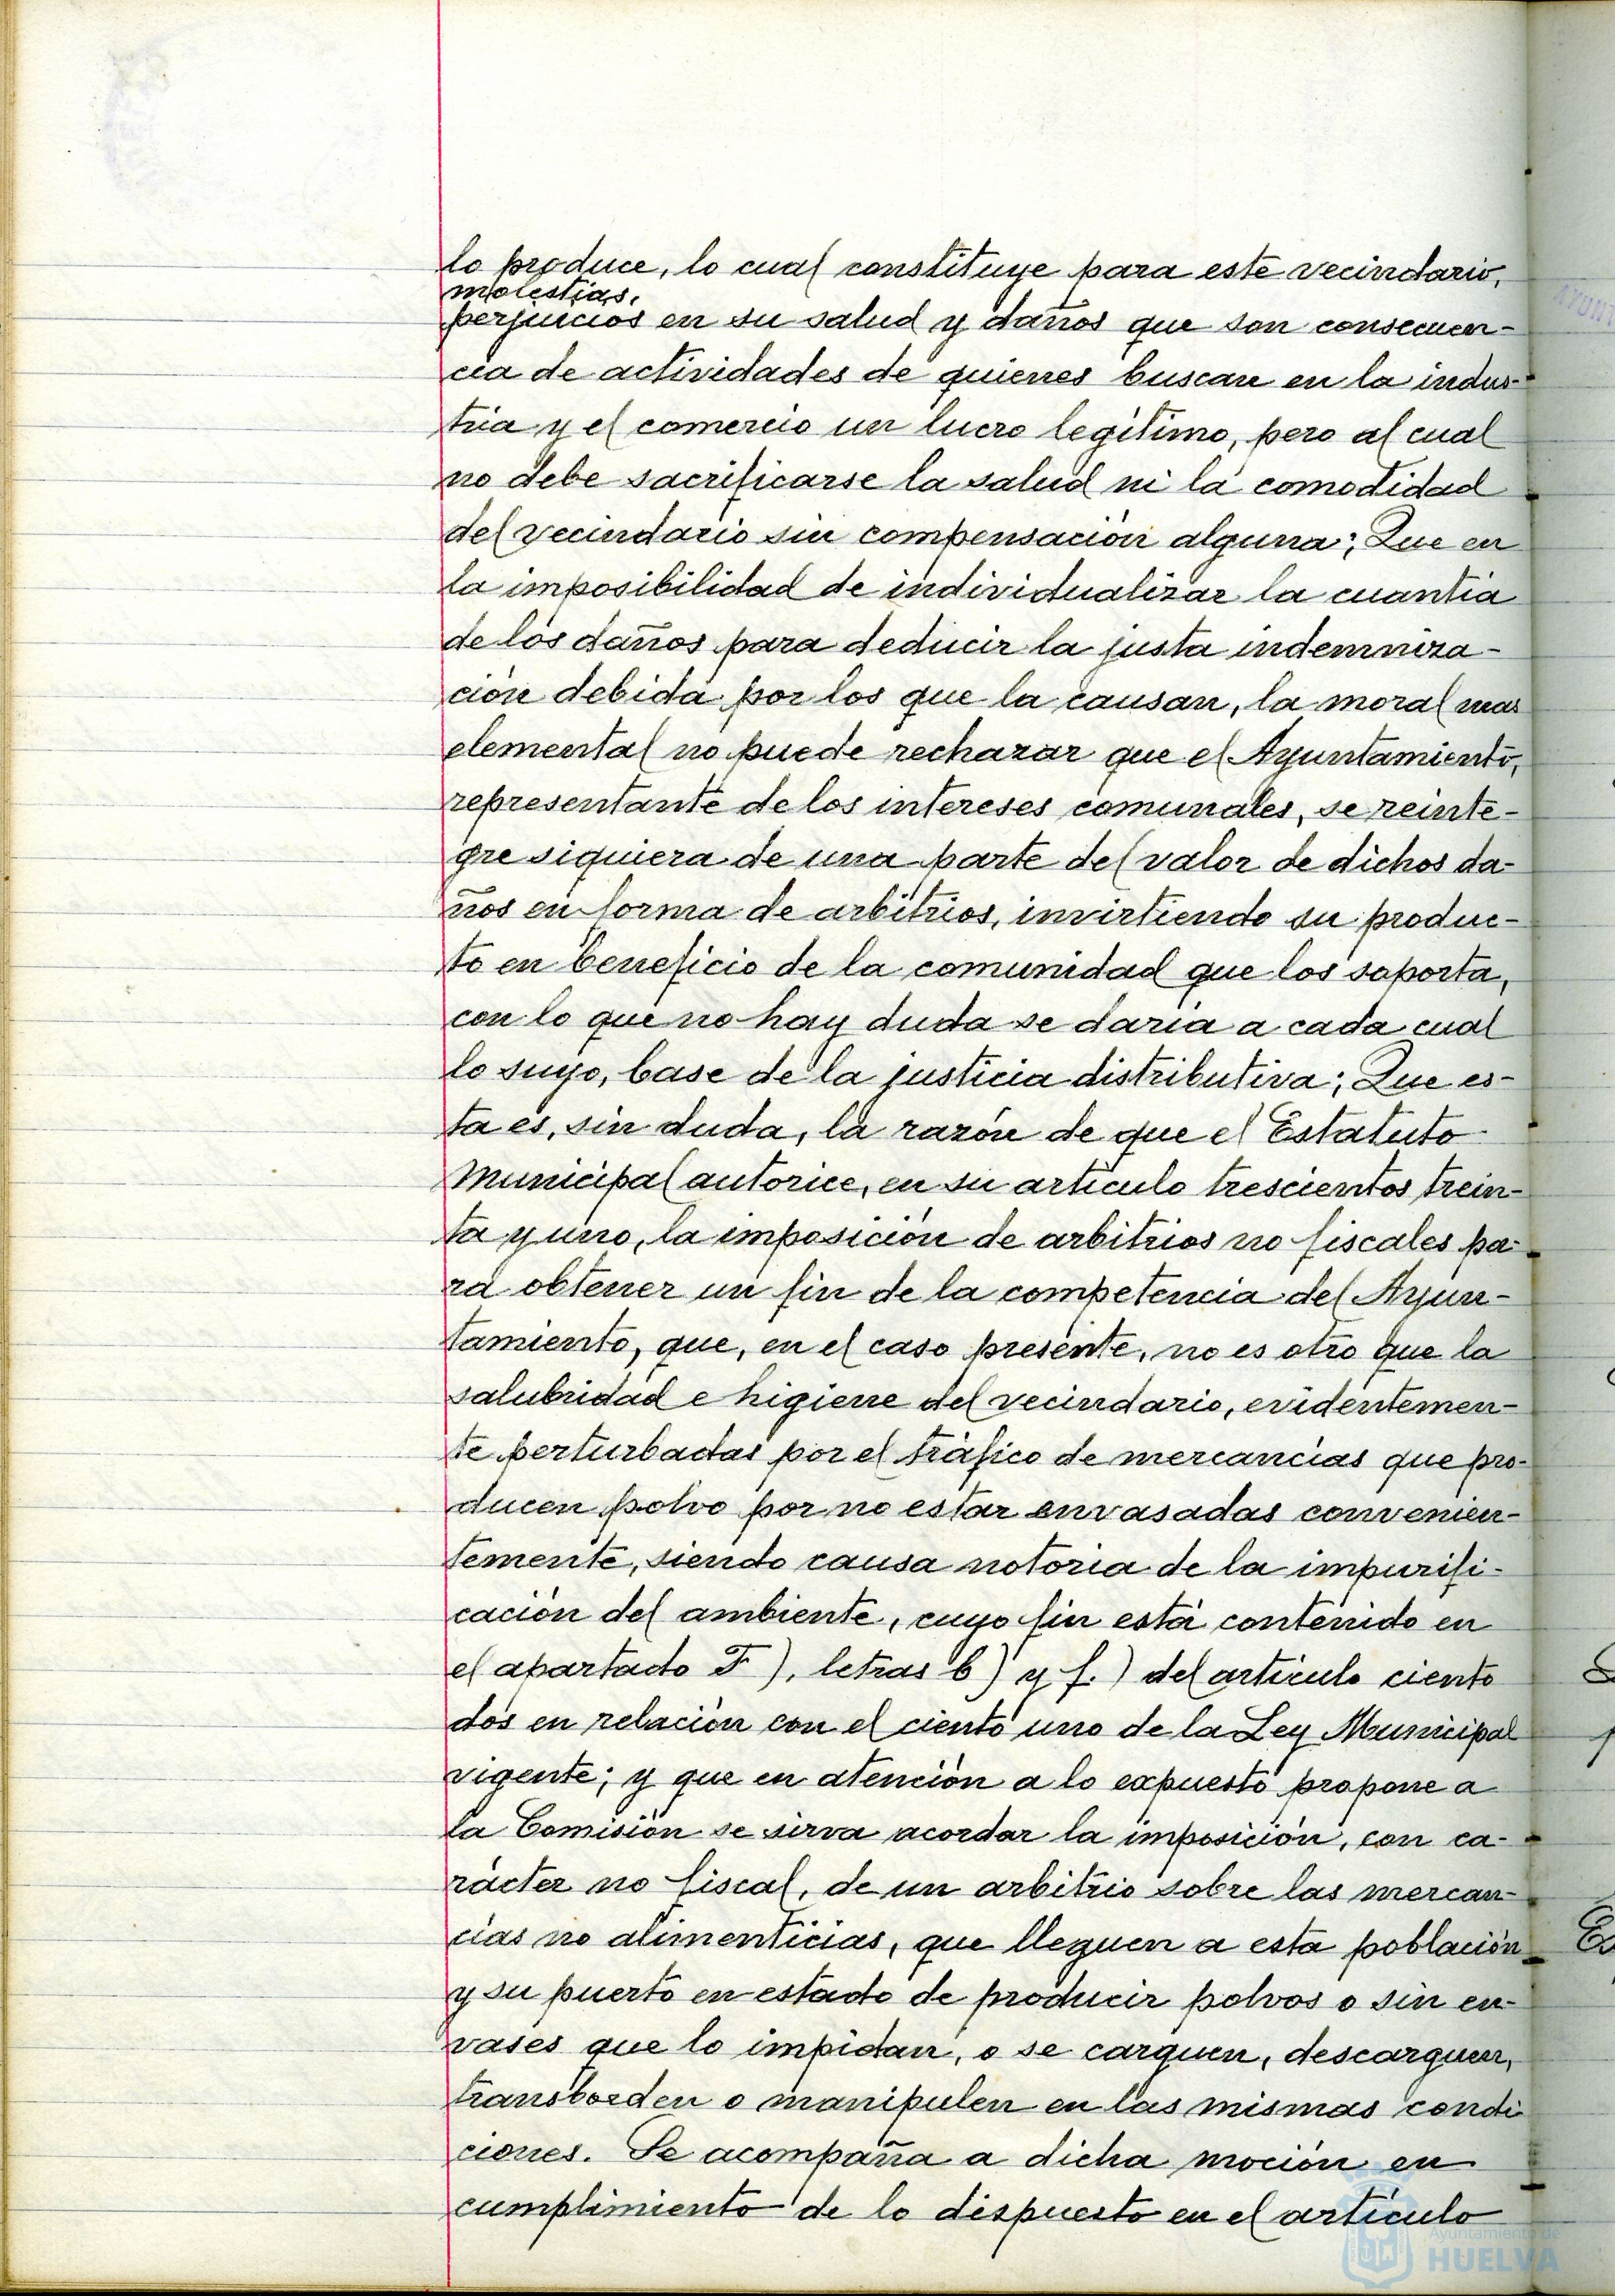 lo produce, lo cual constituye para este vecindario,
molestias,
perjuicios en su salud y daños que son consecuen-
cia de actividades de quienes buscan en la indus-
tria y el comercio un lucro legítimo, pero al cual
no debe sacrificarse la salud ni la comodidad
del vecindario sin compensación alguna; Que en
la imposibilidad de individualizar la cuantía
de los daños para deducir la justa indemniza-
ción debida por los que la causan, la moral mas
elemental no puede rechazar que el Ayuntamiento,
representante de los intereses comunales, se reinte-
gre siquiera de una parte del valor de dichos da-
ños en forma de arbitrios, invirtiendo su produc-
to en beneficio de la comunidad que los soporta,
con lo que no hay duda se daría a cada cual
lo suyo, base de la justicia distributiva; Que es-
ta es, sin duda, la razón de que el Estatuto
Municipal autorice, en su artículo trescientos trein-
ta y uno, la imposición de arbitrios no fiscales pa-
ra obtener un fin de la competencia del Ayun-
tamiento, que, en el caso presente, no es otro que la
salubridad e higiene del vecindario, evidentemen-
te perturbadas por el tráfico de mercancías que pro-
ducen polvo por no estar envasadas convenien-
temente, siendo causa notoria de la impurifi-
cación del ambiente, cuyo fin está contenido en
el apartado F), letras b) y f.) del artículo ciento
dos en relación con el ciento uno de la Ley Municipal
vigente; y que en atención a lo expuesto propone a
la Comisión se sirva acordar la imposición, con ca-
rácter no fiscal, de un arbitrio sobre las mercan-
cías no alimenticias, que lleguen a esta población
y su puerto en estado de producir polvos o sin en-
vases que lo impidan, o se carguen, descarguen,
transborden o manipulen en las mismas condi
ciones. Se acompaña a dicha moción en
cumplimiento de lo dispuesto en el artículo
Ayuntamiento de
HUELVA